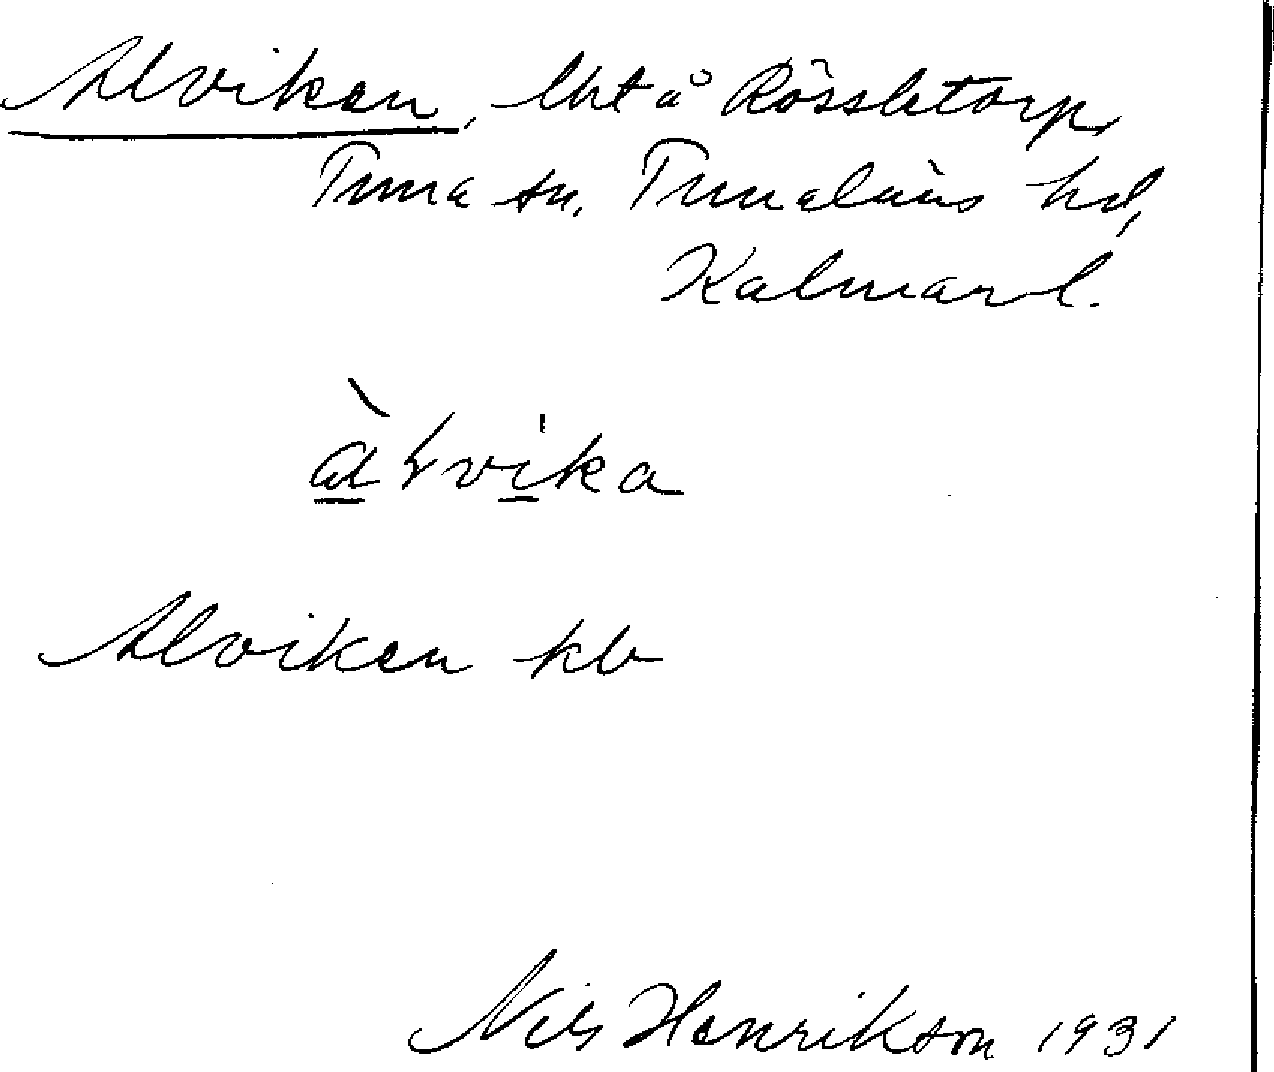 Alviken, lht å Rössletorp,
Tuna sn, Tunaläns hd,
Kalmar l.
àlvika
Alviken kb
Nils Henrikson 1931